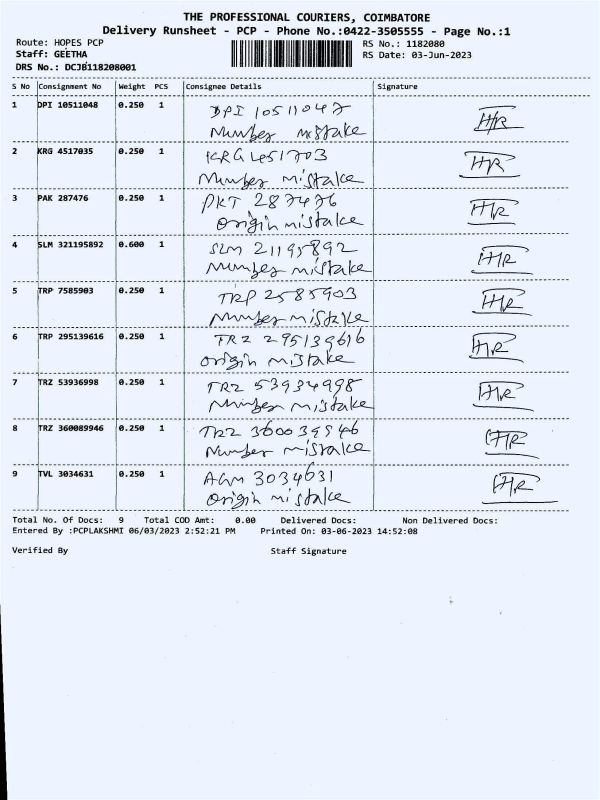 THE PROFESSIONAL COURIERS, COIMBATORE
Delivery Runsheet - PCP - Phone No.:0422-3505555 - Page No.:1
Route: HOPES PCP
Staff: GEETHA
DRS No.: DCJB118208001
RS No.: 1182080
RS Date: 03-Jun-2023
S No Consignment No Weight PCS Consignee Details Signature
1 DPI 10511048 0.250 1 DPI 10511047
Number mistake
HR
2 KRG 4517035 0.250 1 KRG 451703
Number mistake
HR
3 PAK 287476 0.250 1 PKT 287476
Origin mistake
HR
4 SLM 321195892 0.600 1 SLM 21195892
Number mistake
HR
5 TRP 7585903 0.250 1 TRP 2585903
Number mistake
HR
6 TRP 295139616 0.250 1 TRZ 295139616
Origin mistake
HR
7 TRZ 53936998 0.250 1 TRZ 53934998
Number mistake
HR
8 TRZ 360089946 0.250 1 TRZ
Number mistake
HR
9 TVL 3034631 0.250 1 AGM 3034631
Origin mistake
HR
Total No. Of Docs: 9 Total COD Amt: 0.00 Delivered Docs: Non Delivered Docs:
Entered By :PCPLAKSHMI 06/03/2023 2:52:21 PM Printed On: 03-06-2023 14:52:08
Verified By Staff Signature